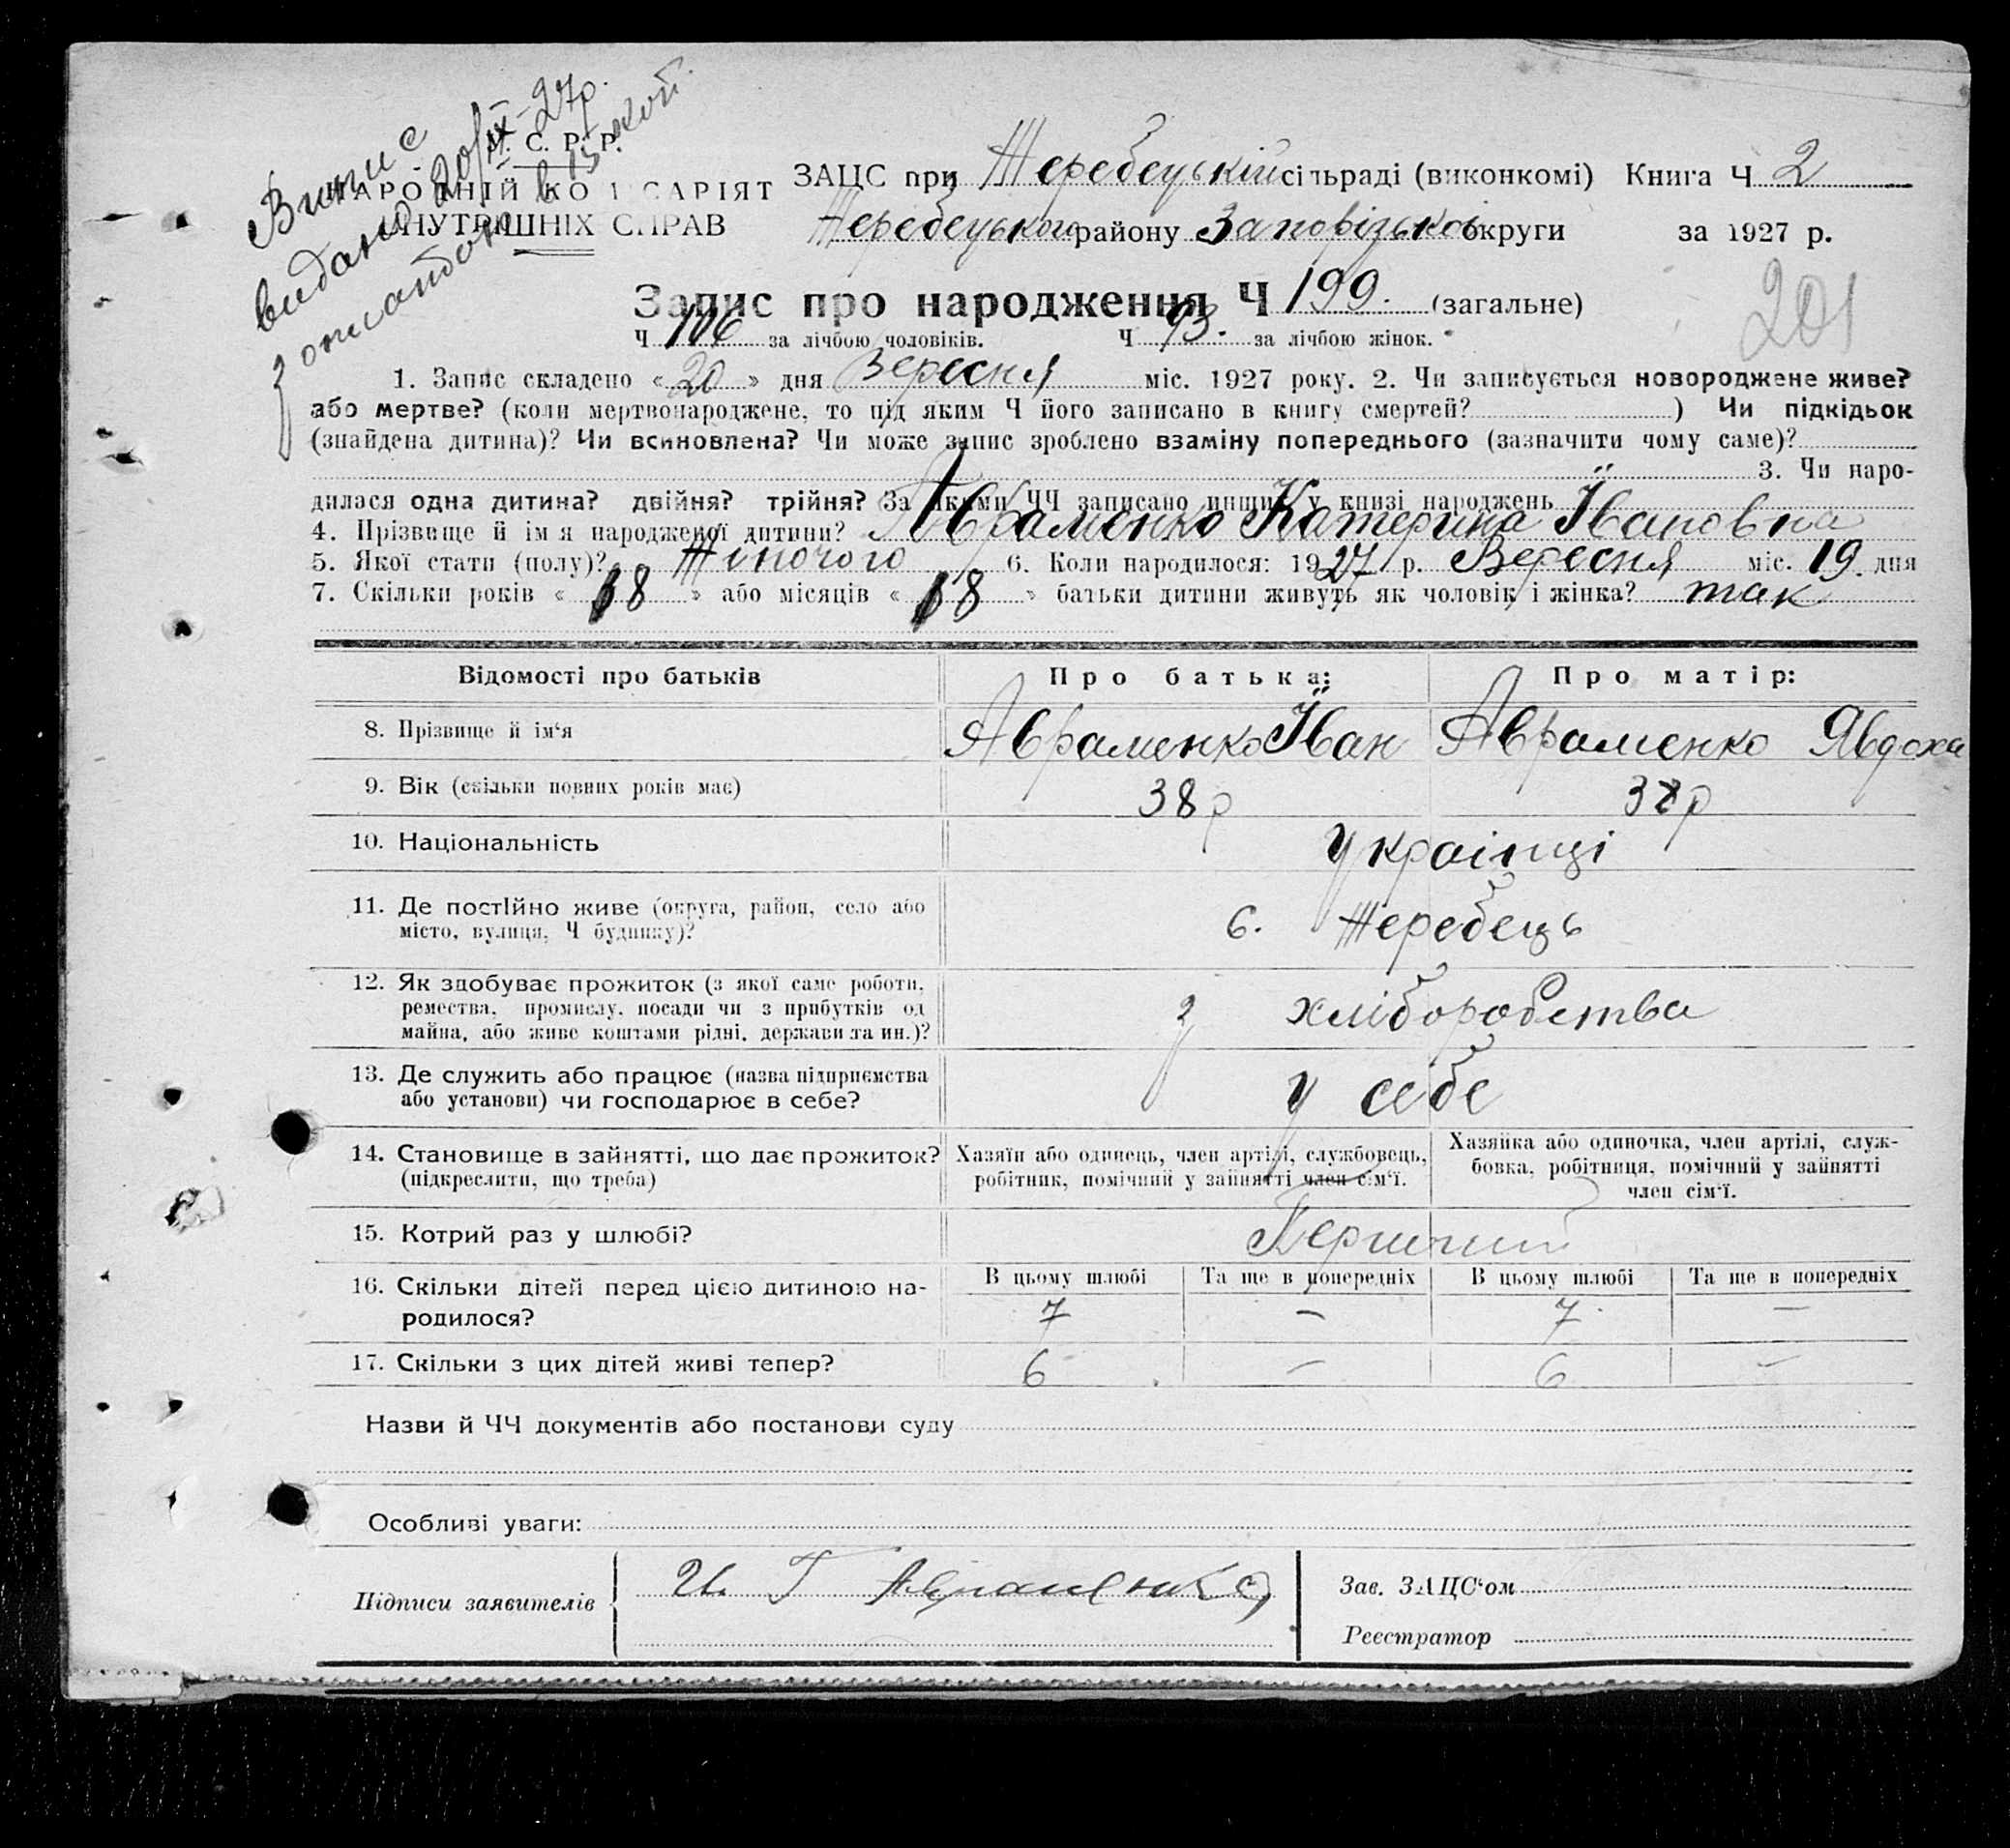 Витис
видано 20/IX-27р.
У. С. Р. Р.
НАРОДНІЙ КОМІСАРІЯТ
ВНУТРІШНІХ СПРАВ
ЗАЦС при Жеребецькій сільраді (виконкомі) Книга Ч 2
Жеребецького району Запорізької округи за 1927 р.
Запис про народження Ч 199. (загальне)
201
Ч 106 за лічбою чоловіків. Ч 93. за лічбою жінок.
1. Запис складено « 20 » дня Вересня міс. 1927 року. 2. Чи записується новороджене живе?
або мертве? (коли мертвонароджене, то під яким Ч його записано в книгу смертей? ) Чи підкідьок
(знайдена дитина)? Чи всиновлена? Чи може запис зроблено взаміну попереднього (зазначити чому саме)?
3. Чи наро-
дилася одна дитина? двійня? трійня? За якими ЧЧ записано инших у книзі народжень
4. Прізвище й ім я народженої дитини? Авраменко Катерина Івановна
5. Якої стати (полу)? Жіночого 6. Коли народилося: 1927 р. Вересня міс. 19. дня
7. Скільки років « 18 » або місяців « 18 » батьки дитини живуть як чоловік і жінка? так
Відомості про батьків Про батька: Про матір:
8. Прізвище й ім‘я Авраменко Іван Авраменко Явдоха
9. Вік (скільки повних років має) 38р 38р
10. Національність Украінці
11. Де постійно живе (округа, район, село або
місто, вулиця, Ч будинку)? с. Жеребець
12. Як здобуває прожиток (з якої саме роботи,
ремества, промислу, посади чи з прибутків од
майна, або живе коштами рідні, держави та ин.)? з хліборобства
13. Де служить або працює (назва підприємства
або установи) чи господарює в себе? у себе
14. Становище в зайнятті, що дає прожиток?
(підкреслити, що треба)
Хазяїн або одинець, член артілі, службовець,
робітник, помічний у зайнятті член сім‘ї.
Хазяйка або одиночка, член артілі, служ-
бовка, робітниця, помічний у зайнятті
член сім‘ї.
15. Котрий раз у шлюбі? Перший
16. Скільки дітей перед цією дитиною на-
родилося?
В цьому шлюбі Та ще в попередніх В цьому шлюбі Та ще в попередніх
7 – 7 –
17. Скільки з цих дітей живі тепер? 6 – 6 –
Назви й ЧЧ документів або постанови суду
Особливі уваги:
Підписи заявителів И. Г Авраменко
Зав. ЗАЦС‘ом
Реєстратор